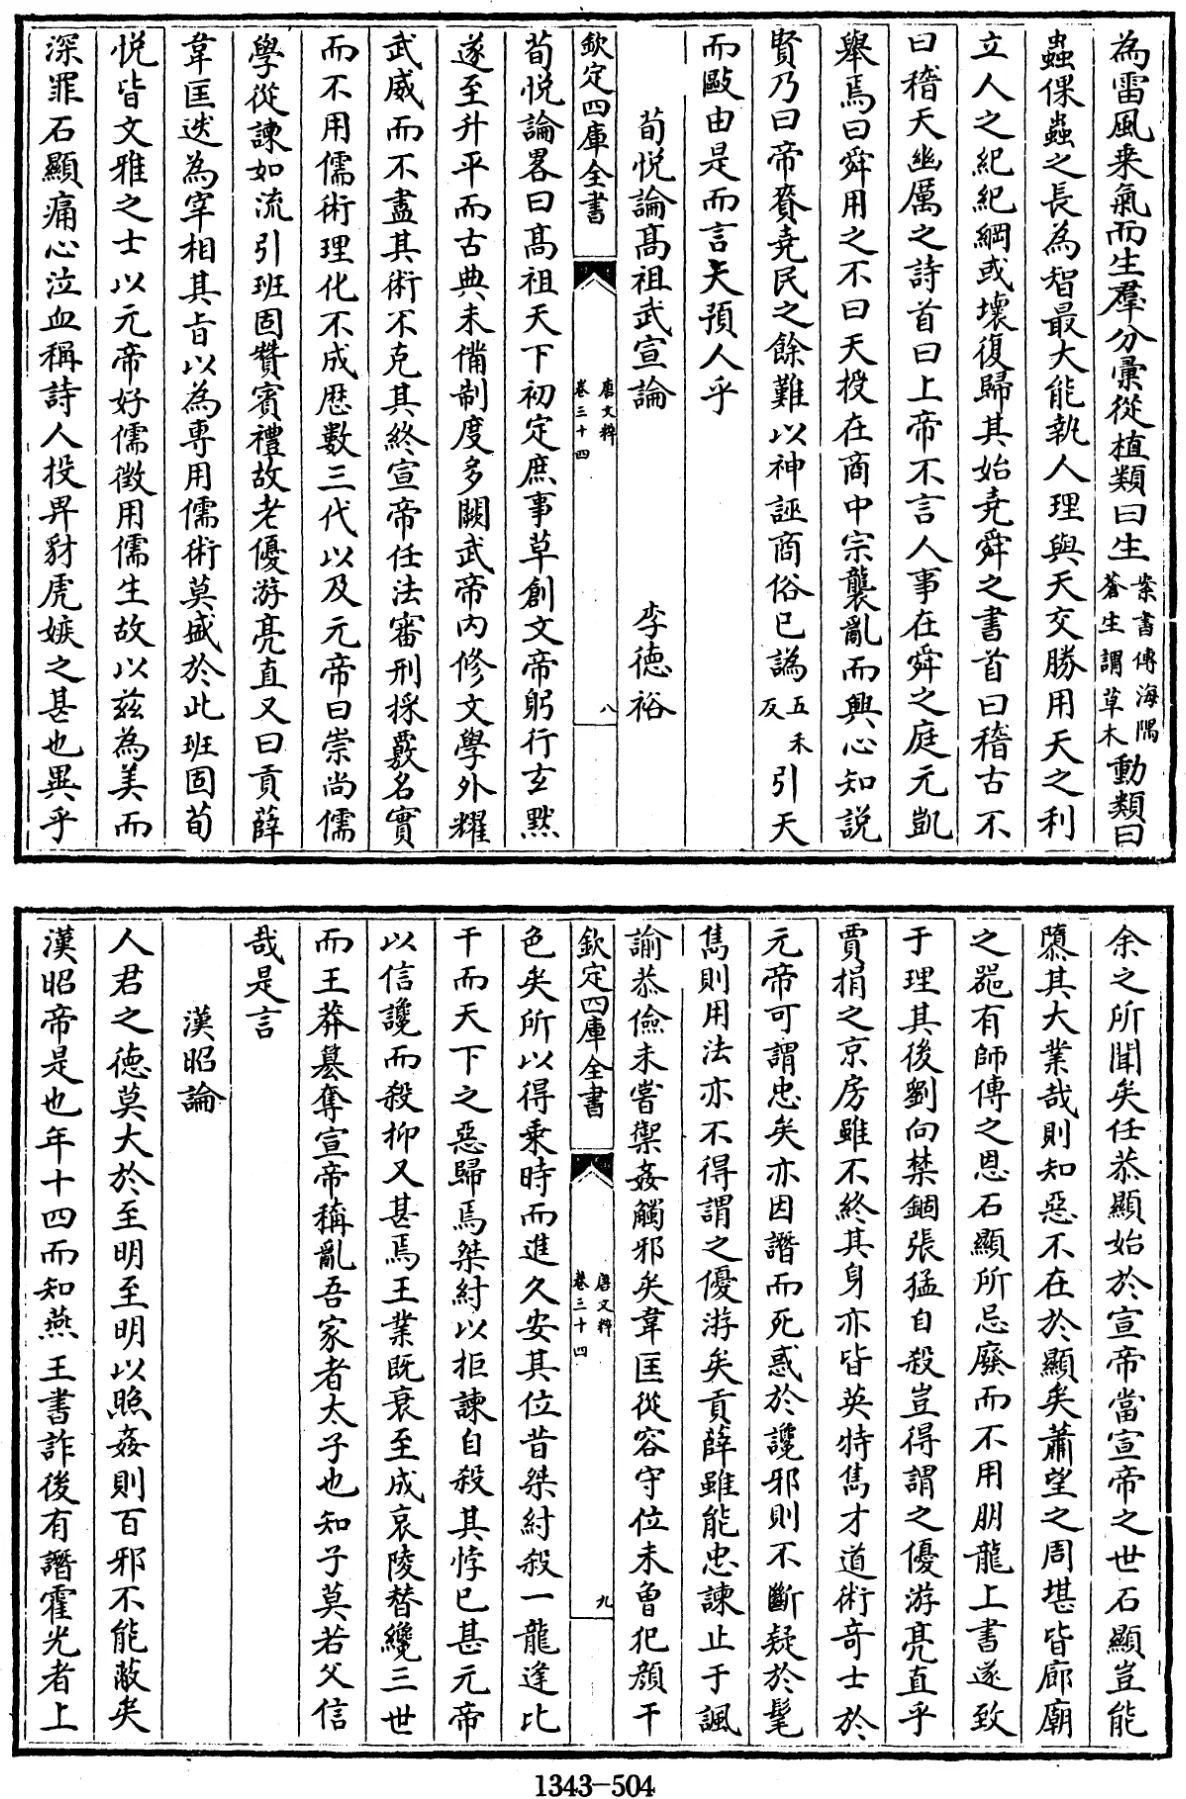 為雷風乗氣而生羣分彚從植類曰生案書傳海隅蒼生謂草木動類曰
蟲倮蟲之長為智最大能執人理與天交勝用天之利
立人之紀紀綱或壊復歸其始堯舜之書首曰稽古不
曰稽天幽厲之詩首曰上帝不言人事在舜之庭元凱
舉焉曰舜用之不曰天授在商中宗襲亂而興心知説
賢乃曰帝賚堯民之餘難以神誣商俗已譌五禾反引天
而敺由是而言天預人乎
荀悦論髙祖武宣論 李德裕
欽定四庫全書 唐文粹 卷三十四 八
荀悦論畧曰髙祖天下初定庶事草創文帝躬行玄黙
遂至升平而古典未備制度多闕武帝内修文學外耀
武威而不盡其術不克其終宣帝任法審刑採覈名實
而不用儒術理化不成厯數三代以及元帝曰崇尚儒
學從諫如流引班固贊賓禮故老優游亮直又曰貢薛
韋匡迭為宰相其㫖以為專用儒術莫盛於此班固荀
悦皆文雅之士以元帝好儒徴用儒生故以兹為美而
深罪石顯痛心泣血稱詩人投畀豺虎嫉之甚也異乎
余之所聞矣任恭顯始於宣帝當宣帝之世石顯豈能
隳其大業哉則知惡不在於顯矣蕭望之周堪皆廊廟
之器有師傅之恩石顯所忌廢而不用朋龍上書遂致
于理其後劉向禁錮張猛自殺豈得謂之優游亮直乎
賈捐之京房雖不終其身亦皆英特雋才道術竒士於
元帝可謂忠矣亦因譖而死惑於讒邪則不斷疑於髦
雋則用法亦不得謂之優游矣貢薛雖能忠諫止于諷
諭恭儉未嘗禦姦觸邪矣韋匡從容守位未曾犯顔干
欽定四庫全書 唐文粹 卷三十四 九
色矣所以得乗時而進久安其位昔桀紂殺一龍逢比
干而天下之惡歸焉桀紂以拒諫自殺其悖已甚元帝
以信讒而殺抑又甚焉王業既衰至成哀陵替纔三世
而王莽簒奪宣帝稱亂吾家者太子也知子莫若父信
哉是言
漢昭論
人君之德莫大於至明至明以照姦則百邪不能蔽矣
漢昭帝是也年十四而知燕王書詐後有譖霍光者上
1343-504